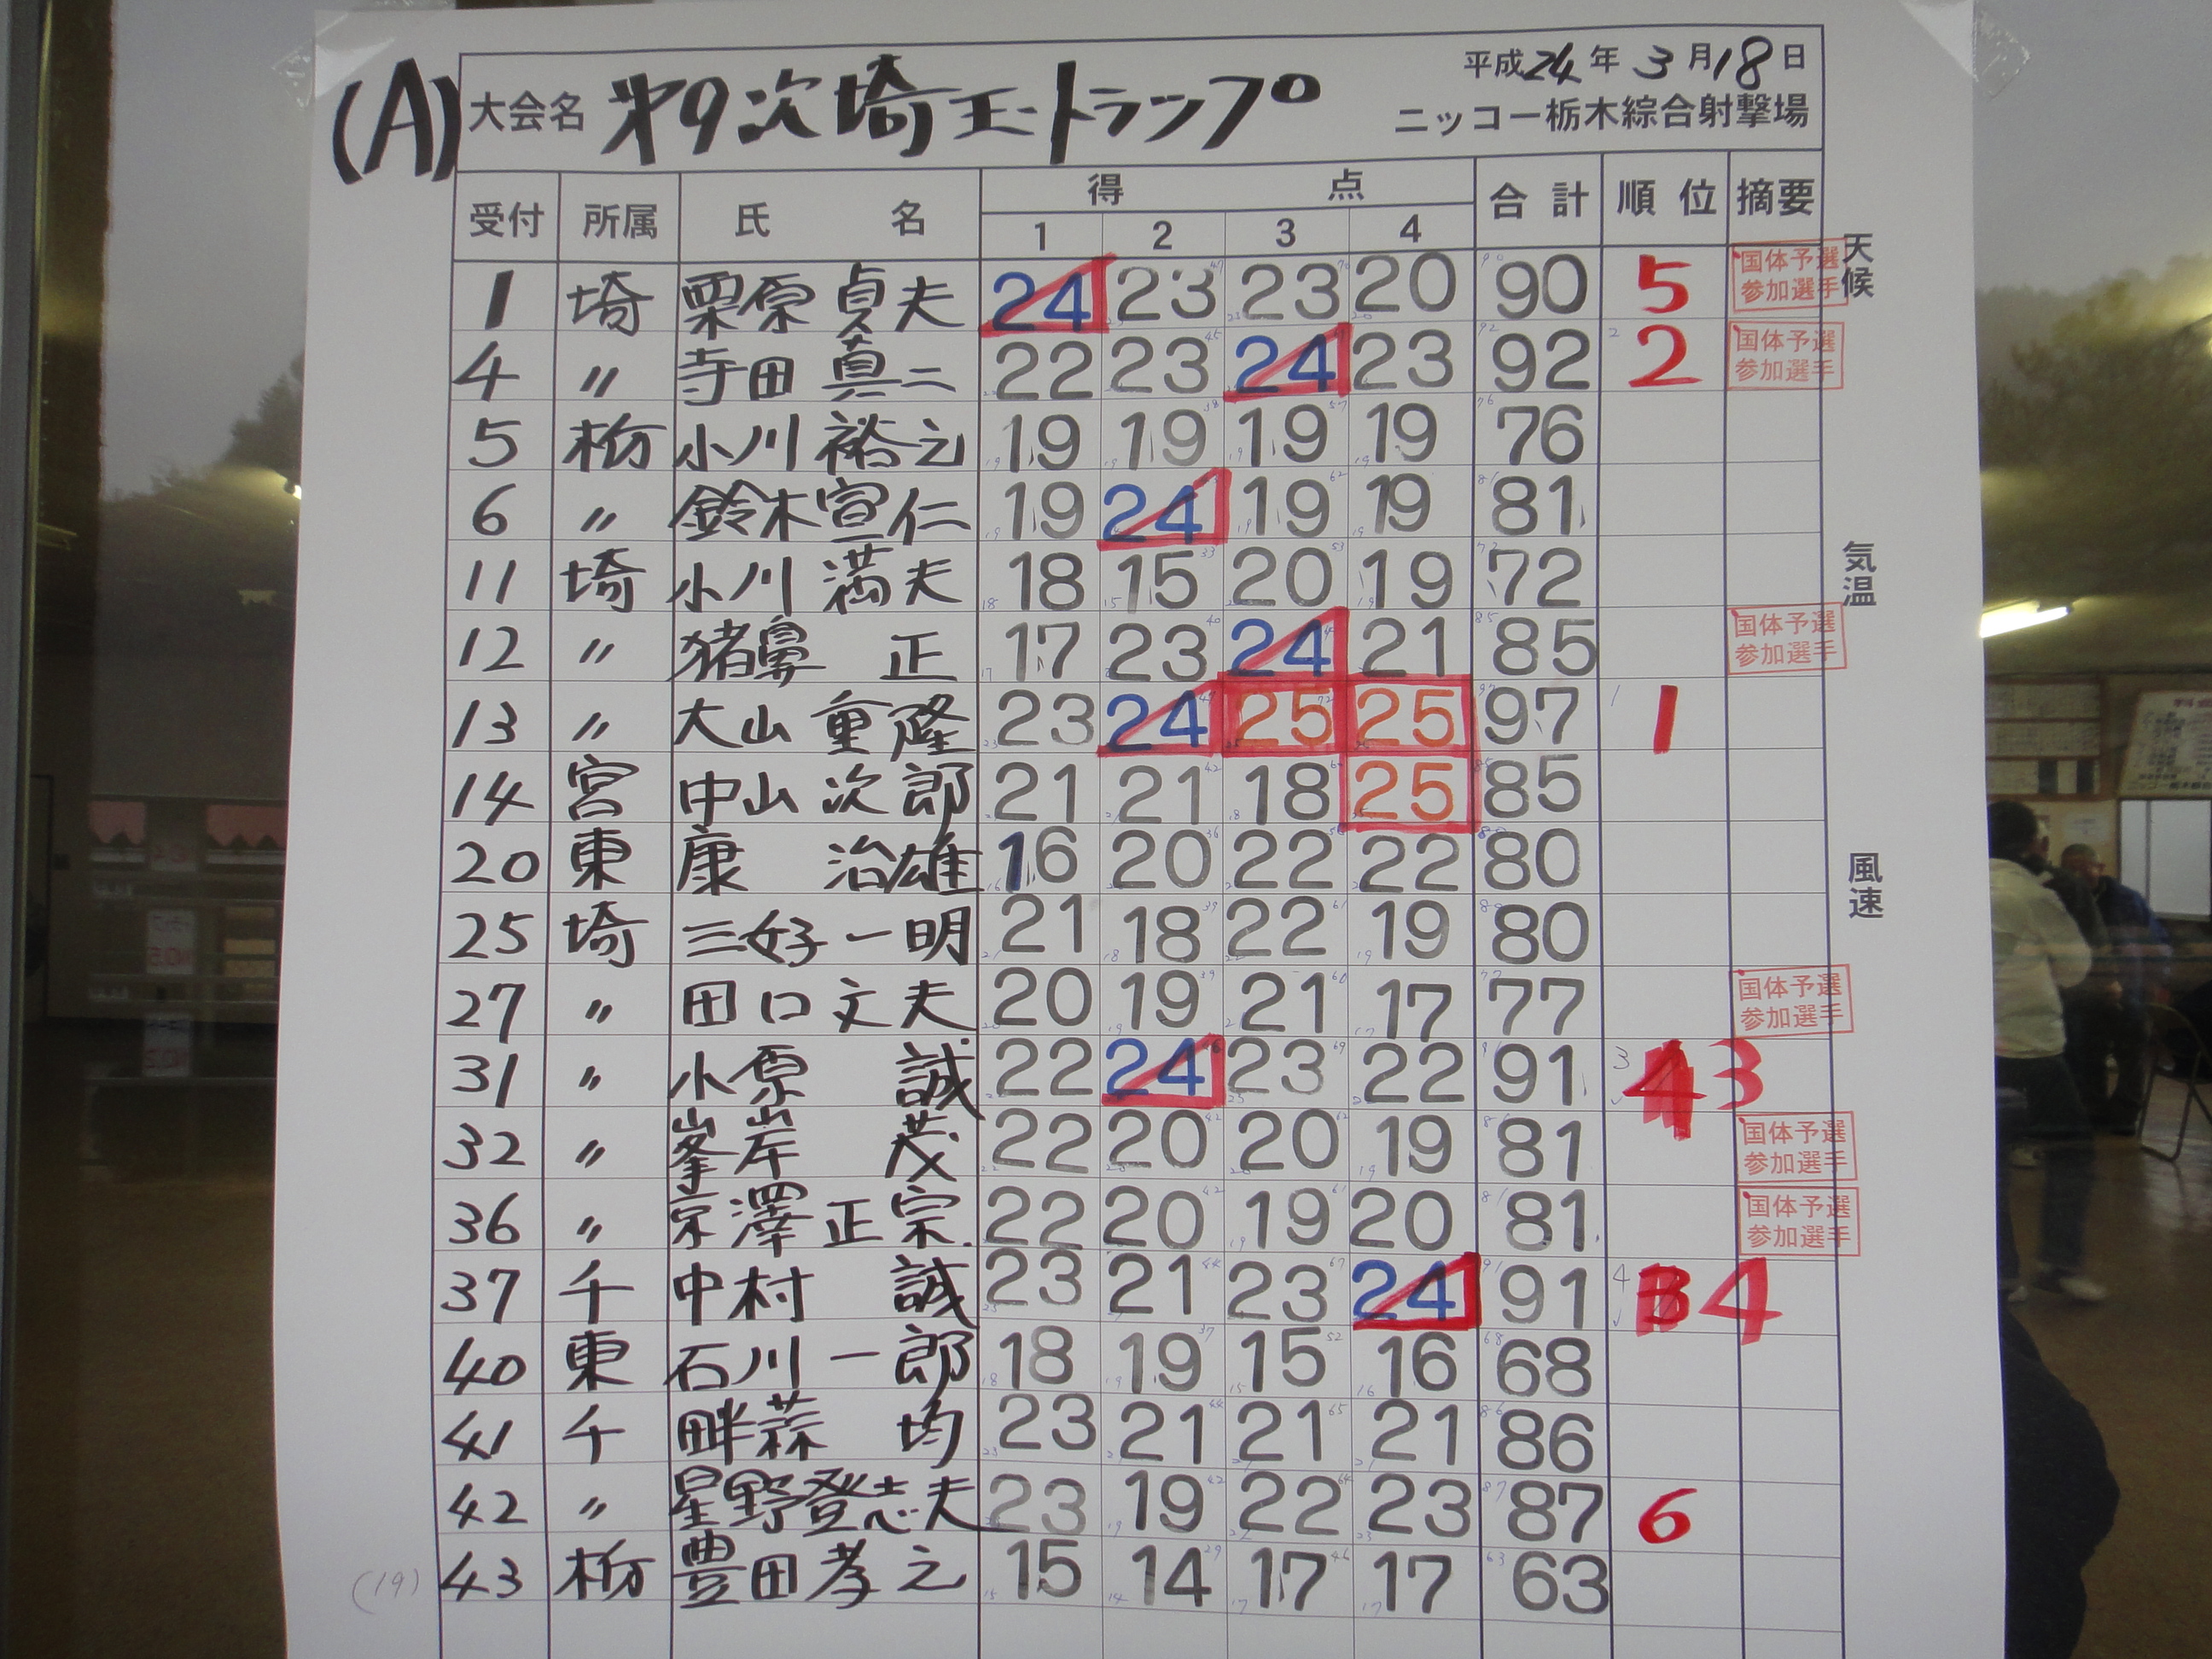 (A)
平成24年3月18日
大会名 第9次埼玉トラップ
ニッコー栃木綜合射撃場
受付 所属 氏名 得点 合計 順位 摘要
1 2 3 4
1 埼 栗原貞夫 24 23 23 20 90 5 国体予選参加選手
4 〃 寺田真二 22 23 24 23 92 2 国体予選参加選手
5 栃 小川裕之 19 19 19 19 76
6 〃 鈴木宣仁 19 24 19 19 81
11 埼 小川満夫 18 15 20 19 72
12 〃 猪鼻正 17 23 24 21 85 国体予選参加選手
13 〃 大山重隆 23 24 25 25 97 1
14 宮 中山次郎 21 21 18 25 85
20 東 康治雄 16 20 22 22 80
25 埼 三好一明 21 18 22 19 80
27 〃 田口文夫 20 19 21 17 77 国体予選参加選手
31 〃 小原誠 22 24 23 22 91 3
32 〃 峯岸茂 22 20 20 19 81 国体予選参加選手
36 〃 京澤正宗 22 20 19 20 81 国体予選参加選手
37 千 中村誠 23 21 23 24 91 4
40 東 石川一郎 18 19 15 16 68
41 千 畔蒜均 23 21 21 21 86
42 〃 星野登志夫 23 19 22 23 87 6
(19) 43 栃 豊田孝之 15 14 17 17 63
天候
気温
風速